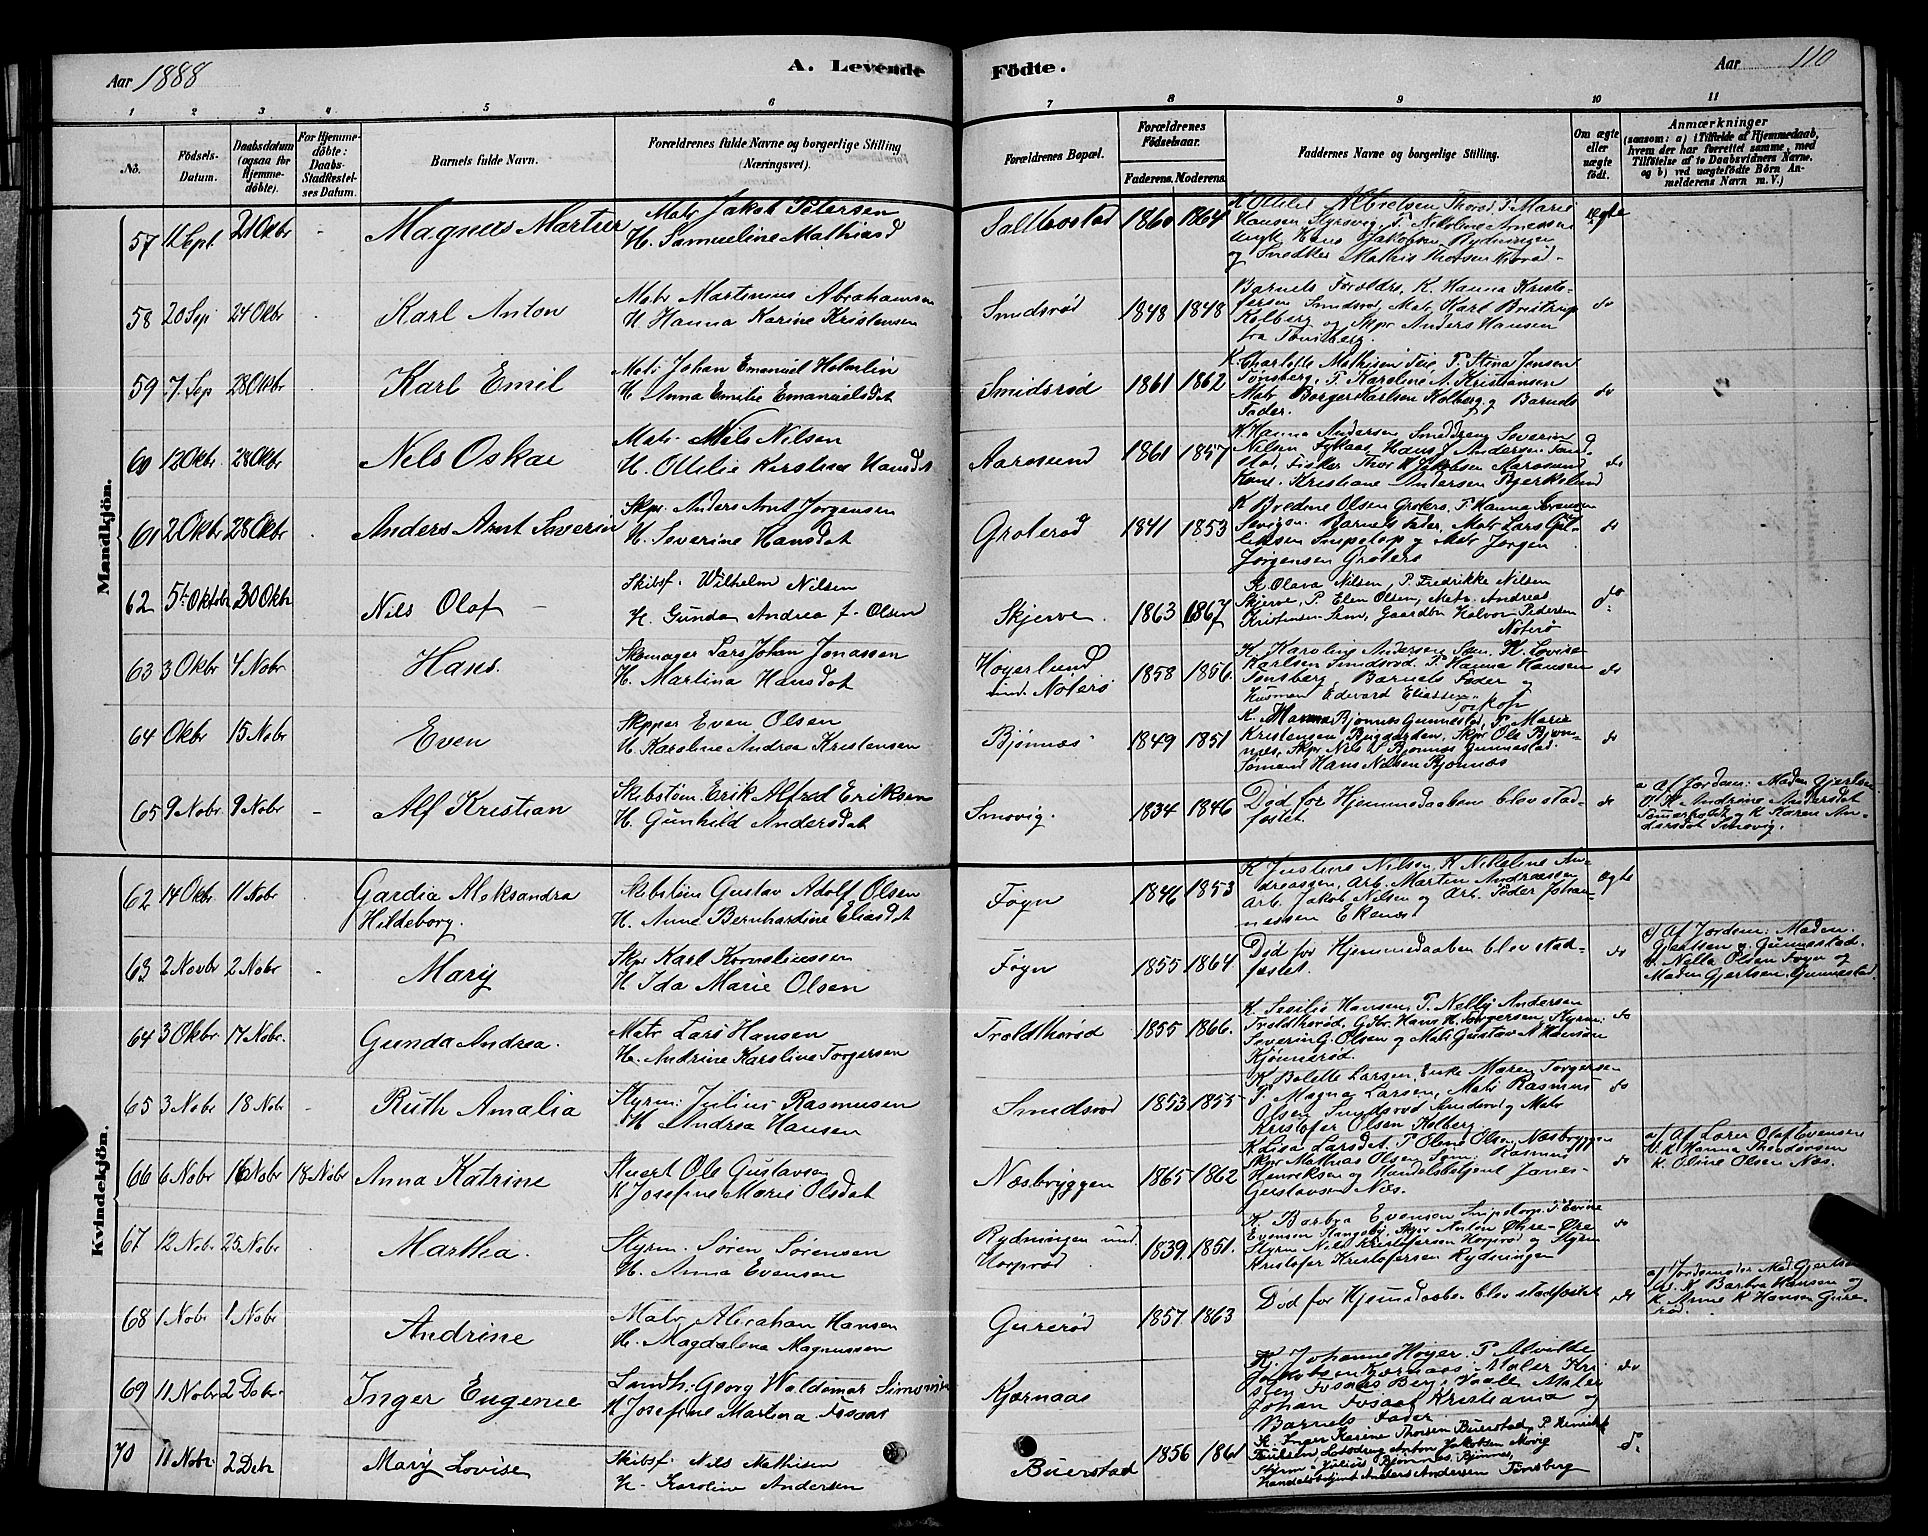 Aar 1888
A. Levende
Fødte.
Aar 110
1 2 3 4 5 6 7 8 9 10 11
No.
Fødsels-
Datum.
Daabsdatum
(ogsaa for
Hjemme-
døbte).
For Hjemme-
døbte:
Daabs-
Stadfæstel-
ses Datum.
Barnets fulde Navn.
Forældrenes fulde Navne og borgerlige Stilling
(Næringsvei).
Forældrenes Bopæl.
Forældrenes
Fødselsaar.
Faderens. Moderens.
Faddernes Navne og borgerlige Stilling.
Om ægte
eller
uægte
født.
Anmærkninger
(saasom: a) i Tilfælde af Hjemmedaab,
hvem der har forrettet samme, med
Tilføielse af to Daabsvidners Navne,
og b) ved uægtefødte Børn An-
melderens Navn m. V.)
Mandkjøn.
57 11 Sept 21 Oktbr - Magnus Martin
Matr Jakob Petersen
H. Samueline Mathiasd
1860 1864
Hansen P. Nikoline
Hans Jakobsen Rydningen
og Snedker Mathis
ægte
58 20 Sep 24 Okbr Karl Anton
Matr Martinius Abrahamsen
H. Hanna Karine Kristensen
Smidsrød 1848 1848
Barnets Forældre, K. Hanna Krist-
Smidsrød, Matr Karl
Kolberg og Skpr Anders Hansen
fra Tønsberg.
do
59 7 Sep 28 Okbr Karl Emil
Matr Johan Emanuel Holmlin
H Anna Emilie Emanuelsdat
Smidsrød 1861 1862
K. Charlotte Mathisen Teie, P. Stina Jensen
Tønsberg, P. Karoline A. Kristiansen
Matr Borger Karlsen Kolberg og Barnets
Fader.
do
60 12 Okbr 28 Okbr Nils Oskar
Matr. Nils Nilsen
H. Ottilie Kirstine Hansdt
Aarøsund 1861 1857
K. Hanna Andersen Severin
Nilsen Hans J Andersen
Fisker Thor H Jakobsen Aarøsund
Kone Kristiane Andersen Bjerkelund
do
61 2 Okbr 28 Okbr Anders Arnt Severin
Skpr Anders Arnt Jørgensen
H. Severine Hansdat
Grøterød 1841 1853
K Bredine Olsen Grøterø, P. Hanna Sørensen
Barnets Fader, Matr Lars Gul-
liksen og Matr Jørgen
Jørgensen Grøterø
do
62 5t Oktbr 30 Okbr Nils Olaf
Skibsf. Wilhelm Nilsen
H. Gunda Andrea f. Olsen
Skjerve. 1863 1867
K Olava Nilsen, P. Fredrikke Nilsen
Skjerve, P. Elen Olsen, Matr. Andreas
Kristensen Sem, Gaardbr Halvor Pedersen
Nøterø
do
63 3 Okbr 4 Nobr Hans.
Skomager Lars Johan Jonassen
H. Martina Hansdat
Høyerlund
Nøterø 1858 1856.
K. Karoline Andersen Sem K. Lovise
Karlsen Smidsrød P. Hanna Hansen
Tønsberg, Barnets Fader og
Husmand Edevard Eliassen
do
64 Okbr 15 Nobr Even
Skpper Even Olsen
H. Karoline Andrea Kristensen
Bjønnæs 1849 1851
K. Hanna Bjønnes Gunnestad, P. Marie
Kristensen Skpr Ole Bjøn-
næs, Skpr Nils S. Bjønnæs Gunnestad.
Sømand Hans Nilsen Bjønnæs
do
65 9 Nobr 9 Nobr - Alf Kristian
Skibstøm. Erik Alfred Eriksen
H. Gunhild Andersdat
Smovig. 1834 1846
Død før Hjemmedaaben blev stad-
fæstet.
do
a Af Jordem: Madm Gjertsen
V. K Andrine Andersdat
og K Karen An-
dersdat Smovig.
Kvindekjøn.
62 14 Okbr 11 Nobr Gardia Aleksandra
Hildeborg.
Skibstøm Gustav Adolf Olsen
H. Anne Bernhardine Eliasdat
Føyn 1846 1853
K Justine Nilsen, K Nikoline An-
dreassen, Arb. Martin Andreassen
Arb. Jakob Nilsen og Arb. Peder Johan-
nessen Ekenæs
ægte
63 2 Novbr 2 Nobr - Mary
Skpr Karl Korneliussen
H Ida Marie Olsen
Føyn 1855 1864
Død før Hjemmedaaben blev stad-
fæstet.
do
a) Af Jordem: Madm.
Gjertsen Gunnestad.
V. Nella Olsen Føyn og
Madm Gjertsen, Gunnestad
64 3 Okbr 17 Nobr. Gunda Andrea.
Matr Lars Hansen
H. Andrine Karoline Torgersen
Troldthorød 1855 1866.
K Sesilie Hansen, P. Nelly Andersen
Troldthorød, Gdbr. Hans H. Torgersen, Styrm:
Severin G. Olsen og Matr Gustav A Hansen
Kjønnerød
do
65 3 Nobr 18 Nobr Ruth Amalia
Styrm: Julius Rasmussen
H Andrea Hansen
Smidsrød 1853 1855
K Bolette Larsen, Enke Maren Torgersen
P. Magna Larsen, Matr Rasmus
Olsen Smidsrød og Matr
Kristofer Olsen Kolberg
do
66 6 Nobr 16 Nobr 18 Nobr Anna Katrine
Stuert Ole Gustavsen
K Josefine Marie Olsdat
Næsbryggen 1865 1862
K Lisa Larsdat, P Oline Olsen, Næsbryggen
Skpr Mathias Olsen Sem: Rasmus
Henriksen og Handelsbetjent Janes
Gustavsen Næs.
do
a) Af Lærer Olaf Evensen
V. K Hanna Theodorsen
K. Oline Olsen Næs.
67 12 Nobr 25 Nobr Martha.
Styrm. Søren Sørensen
H. Anna Evensen
Rydningen und.
Horprød 1839. 1851.
K. Barbra Evensen P. Evine
Evensen Stangeby, Skpr Anton Øhre-Øre
Styrm Nils Kristofersen Horprød og Styrm
Kristofer Kristofersen Rydningen
do
68 1 Nobr 1 Nobr Andrine
Matr Abraham Hansen
H. Magdalena Magnussen
Gurerød 1857 1863
Død før Hjemmedaaben blev stadfæstet
do
a) Jordemoder Mad. Gjertsen
V. K Barbra Hansen og
K. Anne K Hansen Gure-
rød.
69 11 Nobr 2 Debr. Inger Eugenie
Landh. Georg Waldemar Simonsen
H Josefine Martina Fosaas
Kjærnaas
Kj. Johanne Høyer. P. Alvilde
Jakobsen Kjærnaas, Maler Kri-
sten Fosaas Maler
Johan Fosaas Kristiania og
Barnets Fader
do
70 11 Nobr. 2 Debr Mary Lovise
Skibsf. Nils Mathisen
H. Karoline Andersen
Buerstad 1856 1861
K. Inger Karine Thorsen Buerstad, P. Henrikke
Paulsen, Lodsdreng Anton Jakobsen
Styrm Julius Bjønnes, Bjønnes,
Handelsbetjent Anders Andersen Tønsberg